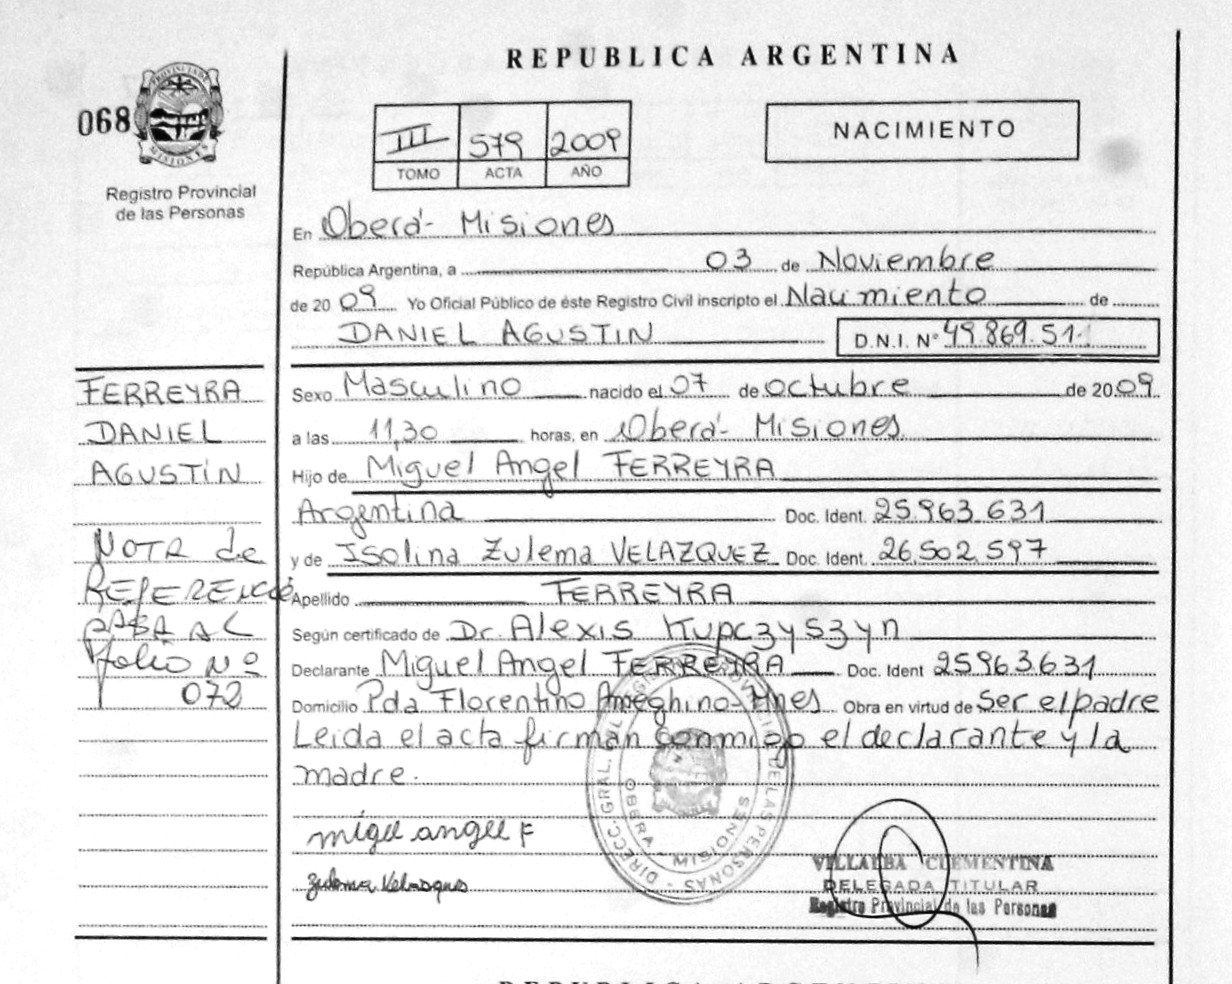 REPUBLICA ARGENTINA
068
PROVINCIA DE
MISIONES
Registro Provincial
de las Personas
III 579 2009
TOMO ACTA AÑO
NACIMIENTO
En Oberá - Misiones
República Argentina, a 03 de Noviembre
de 20 09 Yo Oficial Público de éste Registro Civil inscripto el Nacimiento de
DANIEL AGUSTIN D.N.I. Nº 49.869.511
FERREYRA
DANIEL
AGUSTÍN
NOTA de
REFERENCIA
PASA AL
folio Nº
072
Sexo Masculino nacido el 07 de octubre de 20 09
a las 11,30 horas, en Oberá - Misiones.
Hijo de Miguel Angel FERREYRA
Argentina Doc. Ident. 25.963.631
y de Isolina Zulema VELAZQUEZ Doc. Ident. 26.502.597
Apellido FERREYRA
Según certificado de Dr. Alexis Kupczyszyn
Declarante Miguel Angel FERREYRA Doc. Ident 25963.631
Domicilio Pda Florentino Ameghino - Mnes Obra en virtud de Ser el padre
Leida el acta firman conmigo el declarante y la
madre.
migel angel F
Zulema Velasques
DIRECC. GRAL. REGISTRO PROVINCIAL DE LAS PERSONAS
OBERA - MISIONES
VILLALBA CLEMENTINA
DELEGADA TITULAR
Registro Provincial de las Personas
REPUBLICA ARGENTINA